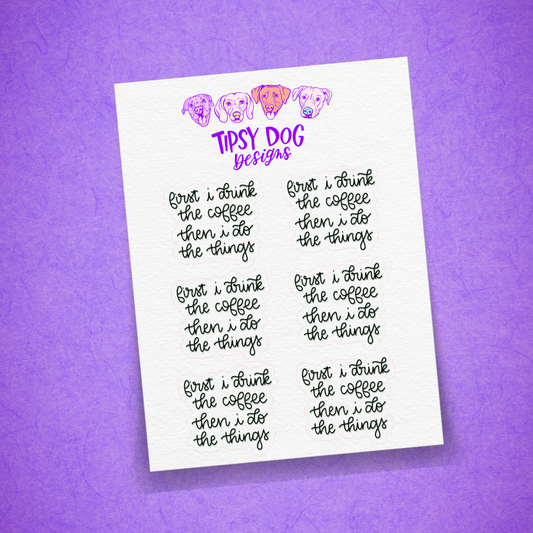 TIPSY DOG
Designs
first i drink
the coffee
then i do
the things
first i drink
the coffee
then i do
the things
first i drink
the coffee
then i do
the things
first i drink
the coffee
then i do
the things
first i drink
the coffee
then i do
the things
first i drink
the coffee
then i do
the things